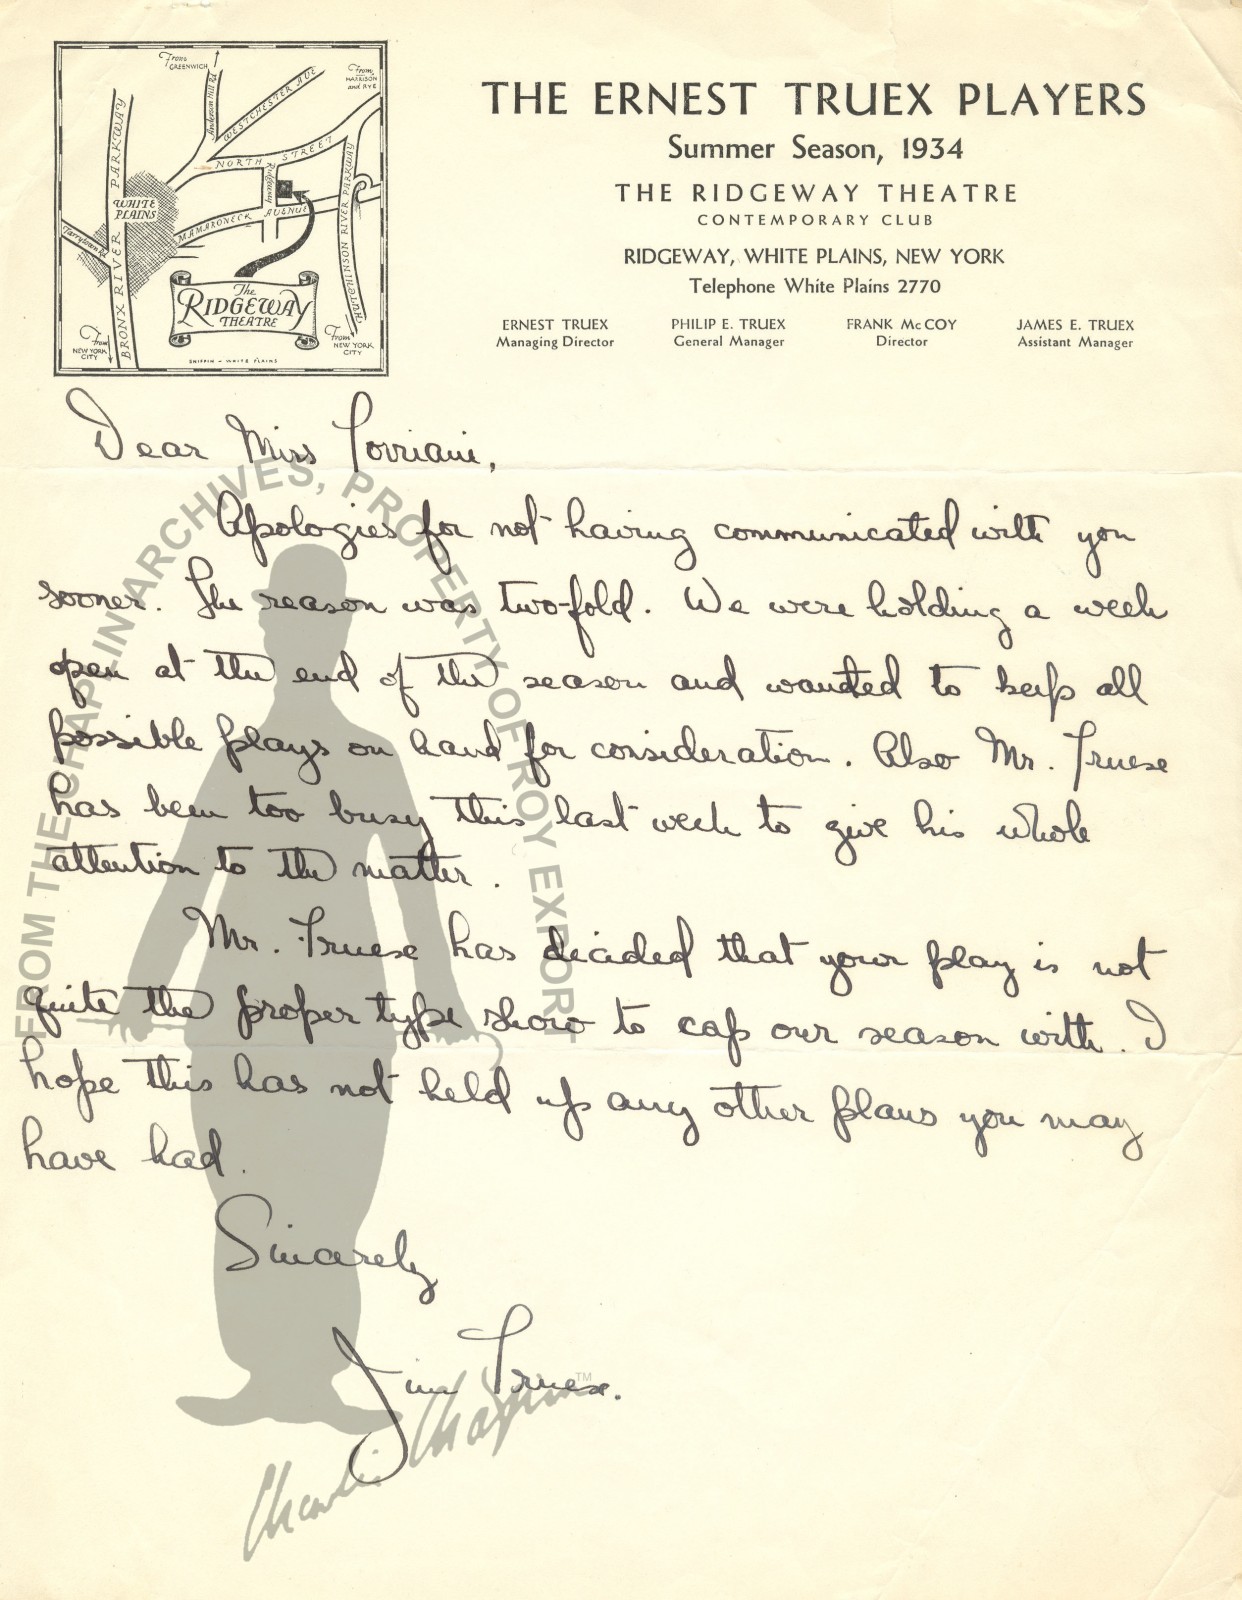 THE ERNEST TRUEX PLAYERS
Summer Season, 1934
THE RIDGEWAY THEATRE
CONTEMPORARY CLUB
RIDGEWAY, WHITE PLAINS, NEW YORK
Telephone White Plains 2770
ERNEST TRUEX PHILIP E. TRUEX FRANK McCOY JAMES E. TRUEX
Managing Director General Manager Director Assistant Manager
From GREENWICH
From HARRISON and RYE
Anderson Hill Rd
WESTCHESTER AVE
NORTH STREET
Ridgeway
BRONX RIVER PARKWAY
WHITE PLAINS
Tarrytown Rd
MAMARONECK AVENUE
HUTCHINSON RIVER PARKWAY
The RIDGEWAY THEATRE
From NEW YORK CITY
From NEW YORK CITY
WHITE PLAINS
Dear Miss
Apologies for not having communicated with you
sooner. The reason was two-fold. We were holding a week
open at the end of the season and wanted to keep all
possible plays on hand for consideration. Also Mr. Truex
has been too busy this last week to give his whole
attention to the matter.
Mr. Truex has decided that your play is not
quite the proper type show to cap our season with. I
hope this has not held up any other plans you may
have had.
Sincerely
Jim Truex.
FROM THE CHAPLIN ARCHIVES, PROPERTY OF ROY EXPORT
Charlie Chaplin™